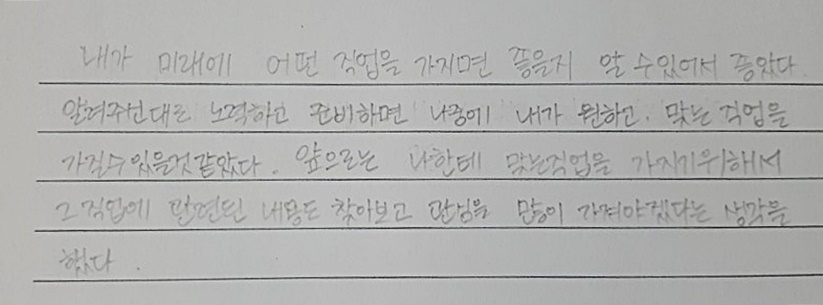 내가 미래에 어떤 직업을 가지면 좋을지 알 수있어서 좋았다
알려주신대로 노력하고 준비하면 나중에 내가 원하고. 맞는 직업을
가질수있을것같았다. 앞으로는 나한테 맞는직업을 가지기위해서
그직업에 관련된 내용도 찾아보고 관심을 많이 가져야겠다는 생각을
했다.